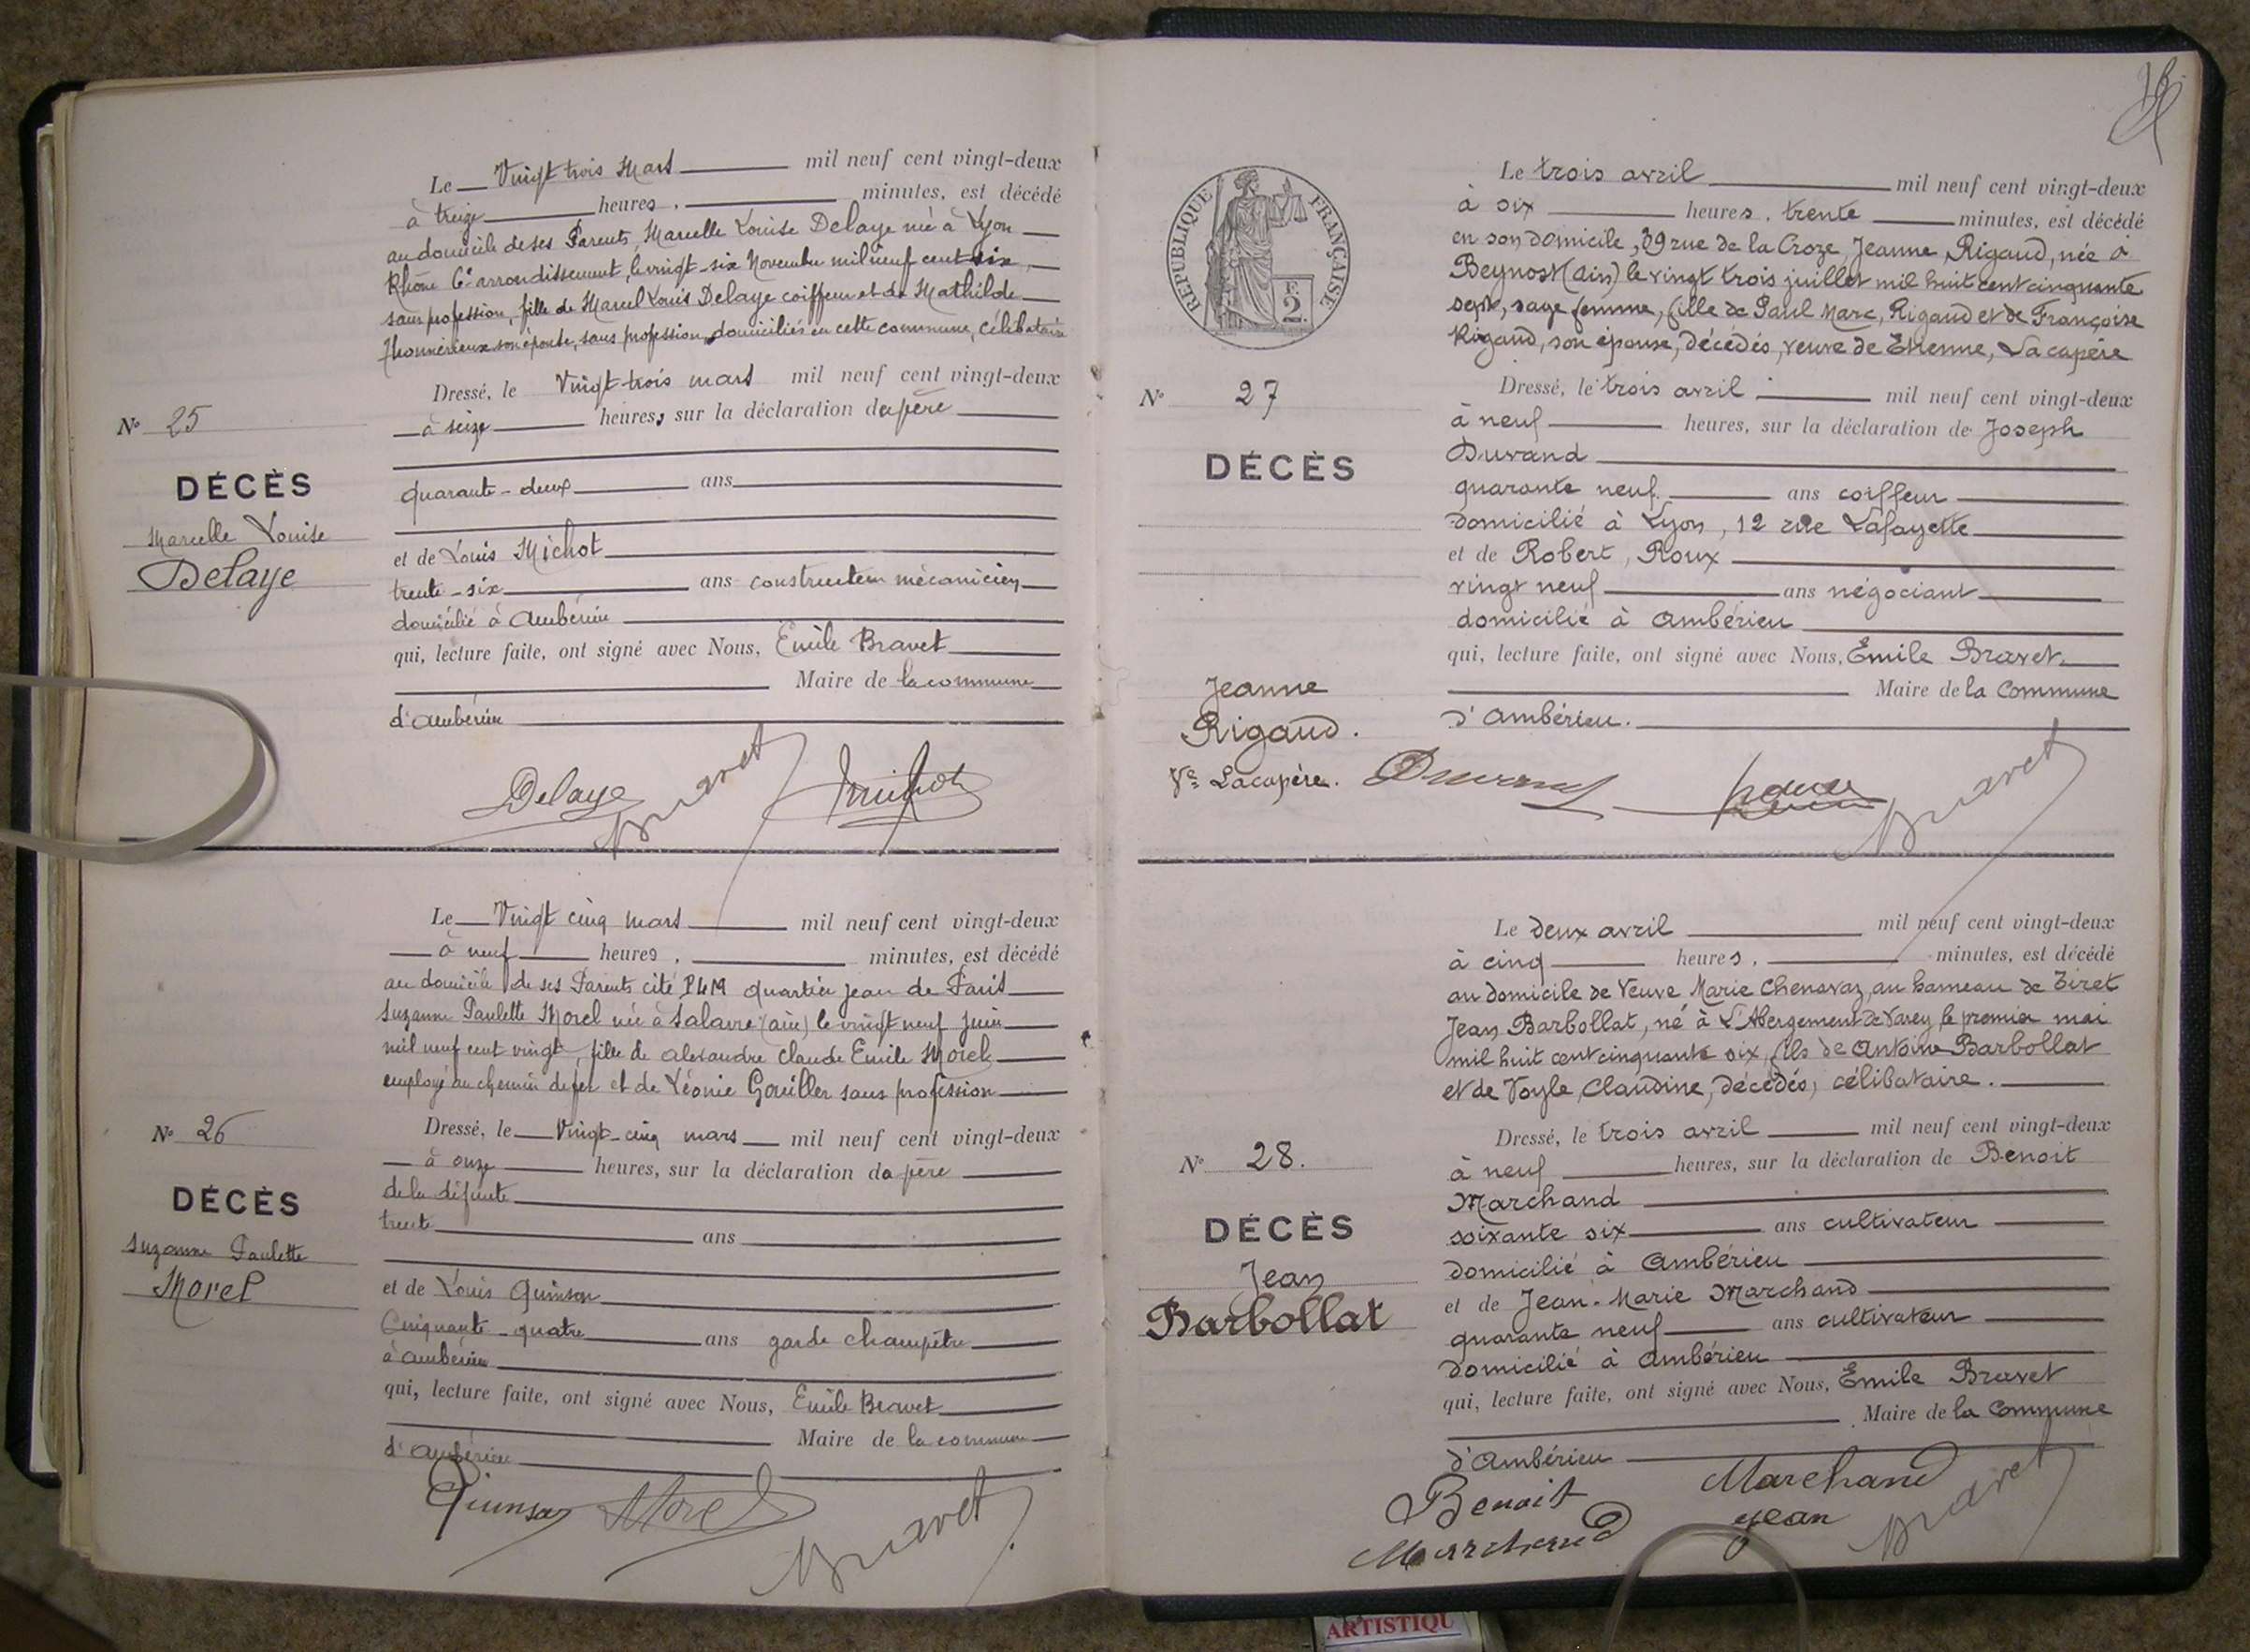 Le Vingt trois Mars mil neuf cent vingt-deux
à treize heures, minutes, est décédé
au domicile de ses Parents, Marcelle Louise Delaye née à Lyon
Rhône 6e arrondissement, le vingt-six Novembre mil neuf cent six,
sans profession, fille de Marcel Louis Delaye coiffeur et de Mathilde
son épouse, sans profession, domiciliés en cette commune, célibataire
Dressé, le Vingt-trois mars mil neuf cent vingt-deux
à seize heures, sur la déclaration du père
quarante-deux ans
et de Louis Michot
trente-six ans constructeur mécanicien
domicilié à Ambérieu
qui, lecture faite, ont signé avec Nous, Emile Bravet
Maire de la commune
d'Ambérieu
No 25
DÉCÈS
Marcelle Louise
Delaye
Delaye Bravet Michot
Le Vingt cinq mars mil neuf cent vingt-deux
à neuf heures, minutes, est décédé
au domicile de ses Parents cité PLM quartier Jean de Paris
Suzanne Paulette Morel née à (ain) le vingt neuf juin
mil neuf cent vingt, fille de Alexandre Claude Emile Morel
employé au chemin de fer et de Léonie Gouiller sans profession
Dressé, le Vingt-cinq mars mil neuf cent vingt-deux
à onze heures, sur la déclaration du père
de la défunte
trente ans
et de Louis Quinson
Cinquante-quatre ans garde champêtre
à Ambérieu
qui, lecture faite, ont signé avec Nous, Emile Bravet
Maire de la commune
d'Ambérieu
No 26
DÉCÈS
Suzanne Paulette
Morel
Quinson Morel Bravet
RÉPUBLIQUE FRANÇAISE
F.
2.
Le trois avril mil neuf cent vingt-deux
à six heures, trente minutes, est décédé
en son domicile, 39 rue de la Croze, Jeanne, Rigaud, née à
Beynost (Ain) le vingt trois juillet mil huit cent cinquante
sept, sage femme, fille de Paul Marc, Rigaud et de Françoise
Rigaud, son épouse, décédés, veuve de Etienne, Lacapère
Dressé, le trois avril mil neuf cent vingt-deux
à neuf heures, sur la déclaration de Joseph
Durand
quarante neuf ans coiffeur
domicilié à Lyon, 12 rue Lafayette
et de Robert, Roux
vingt neuf ans négociant
domicilié à Ambérieu
qui, lecture faite, ont signé avec Nous, Emile Bravet.
Maire de la Commune
d'Ambérieu.
No 27
DÉCÈS
Jeanne
Rigaud.
Ve Lacapère.
Durand Roux Bravet
Le deux avril mil neuf cent vingt-deux
à cinq heures, minutes, est décédé
au domicile de Veuve Marie Chenavaz, au hameau de Tiret
Jean Barbollat, né à L'Abergement de Varey le premier mai
mil huit cent cinquante six, fils de Antoine Barbollat
et de Voyle, Claudine, décédés, célibataire.
Dressé, le trois avril mil neuf cent vingt-deux
à neuf heures, sur la déclaration de Benoit
Marchand
soixante six ans cultivateur
domicilié à Ambérieu
et de Jean-Marie Marchand
quarante neuf ans cultivateur
domicilié à Ambérieu
qui, lecture faite, ont signé avec Nous, Emile Bravet
Maire de la Commune
d'Ambérieu
No 28.
DÉCÈS
Jean
Barbollat
Benoit Marchand
Marchand Jean Bravet
ARTISTIQU